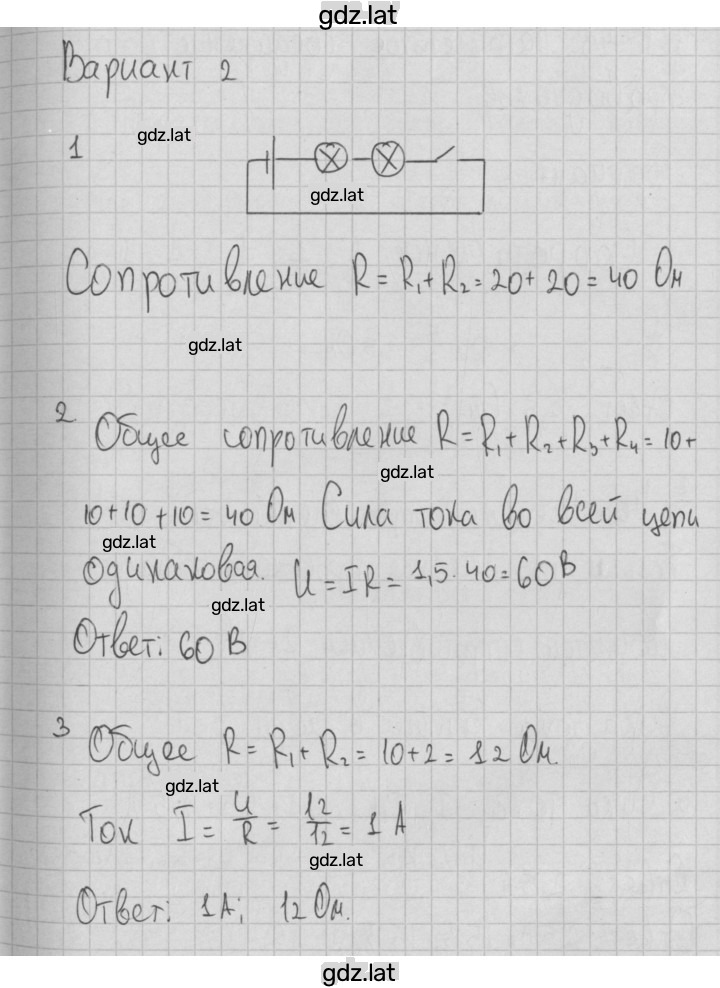 gdz.lat
Вариант 2
1 gdz.lat
gdz.lat
Сопротивление R = R₁ + R₂ = 20 + 20 = 40 Ом
gdz.lat
2 Общее сопротивление R = R₁ + R₂ + R₃ + R₄ = 10 +
gdz.lat
10 + 10 + 10 = 40 Ом Сила тока во всей цепи
gdz.lat
одинаковая. U = IR = 1,5 · 40 = 60 В
gdz.lat
Ответ: 60 В
3 Общее R = R₁ + R₂ = 10 + 2 = 12 Ом.
gdz.lat
Ток I = U/R = 12/12 = 1 А
gdz.lat
Ответ: 1А; 12 Ом.
gdz.lat